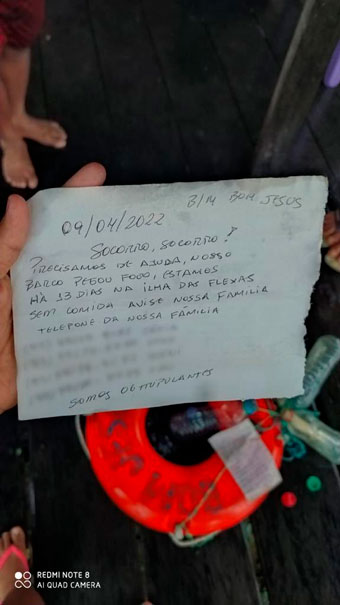 B/M BOM JESUS
09/04/2022
SOCORRO, SOCORRO!
PRECISAMOS DE AJUDA, NOSSO
BARCO PEGOU FOGO, ESTAMOS
HÁ 13 DIAS NA ILHA DAS FLEXAS
SEM COMIDA AVISE NOSSA FAMILIA
TELEFONE DA NOSSA FAMÍLIA
SOMOS 06 TRIPULANTES
REDMI NOTE 8
AI QUAD CAMERA